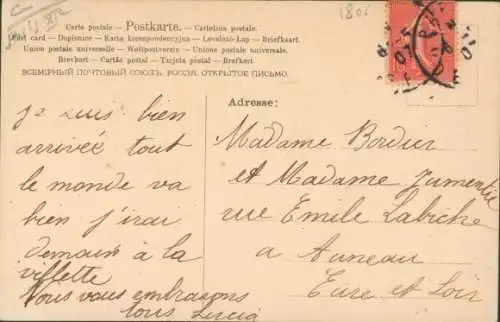 Carte postale — Postkarte. — Cartolina postale.
Post card — Dopisnice — Karta korespondencyjna — Levelező-Lap — Briefkaart
Union postale universelle — Weltpostverein — Unione postale universale.
Brevkort — Cartão postal — Tarjeta postal — Brefkort
ВСЕМІРНЫЙ ПОЧТОВЫЙ СОЮЗЪ. РОССІЯ. ОТКРЫТОЕ ПИСЬМО.
je suis bien
arrivée tout
le monde va
bien j'irai
demain à la
villette
Nous vous embrassons
tous Lucia
Adresse:
Madame Bordier
et Madame Jumentier
rue Emile Labiche
a Auneau
Eure et Loir